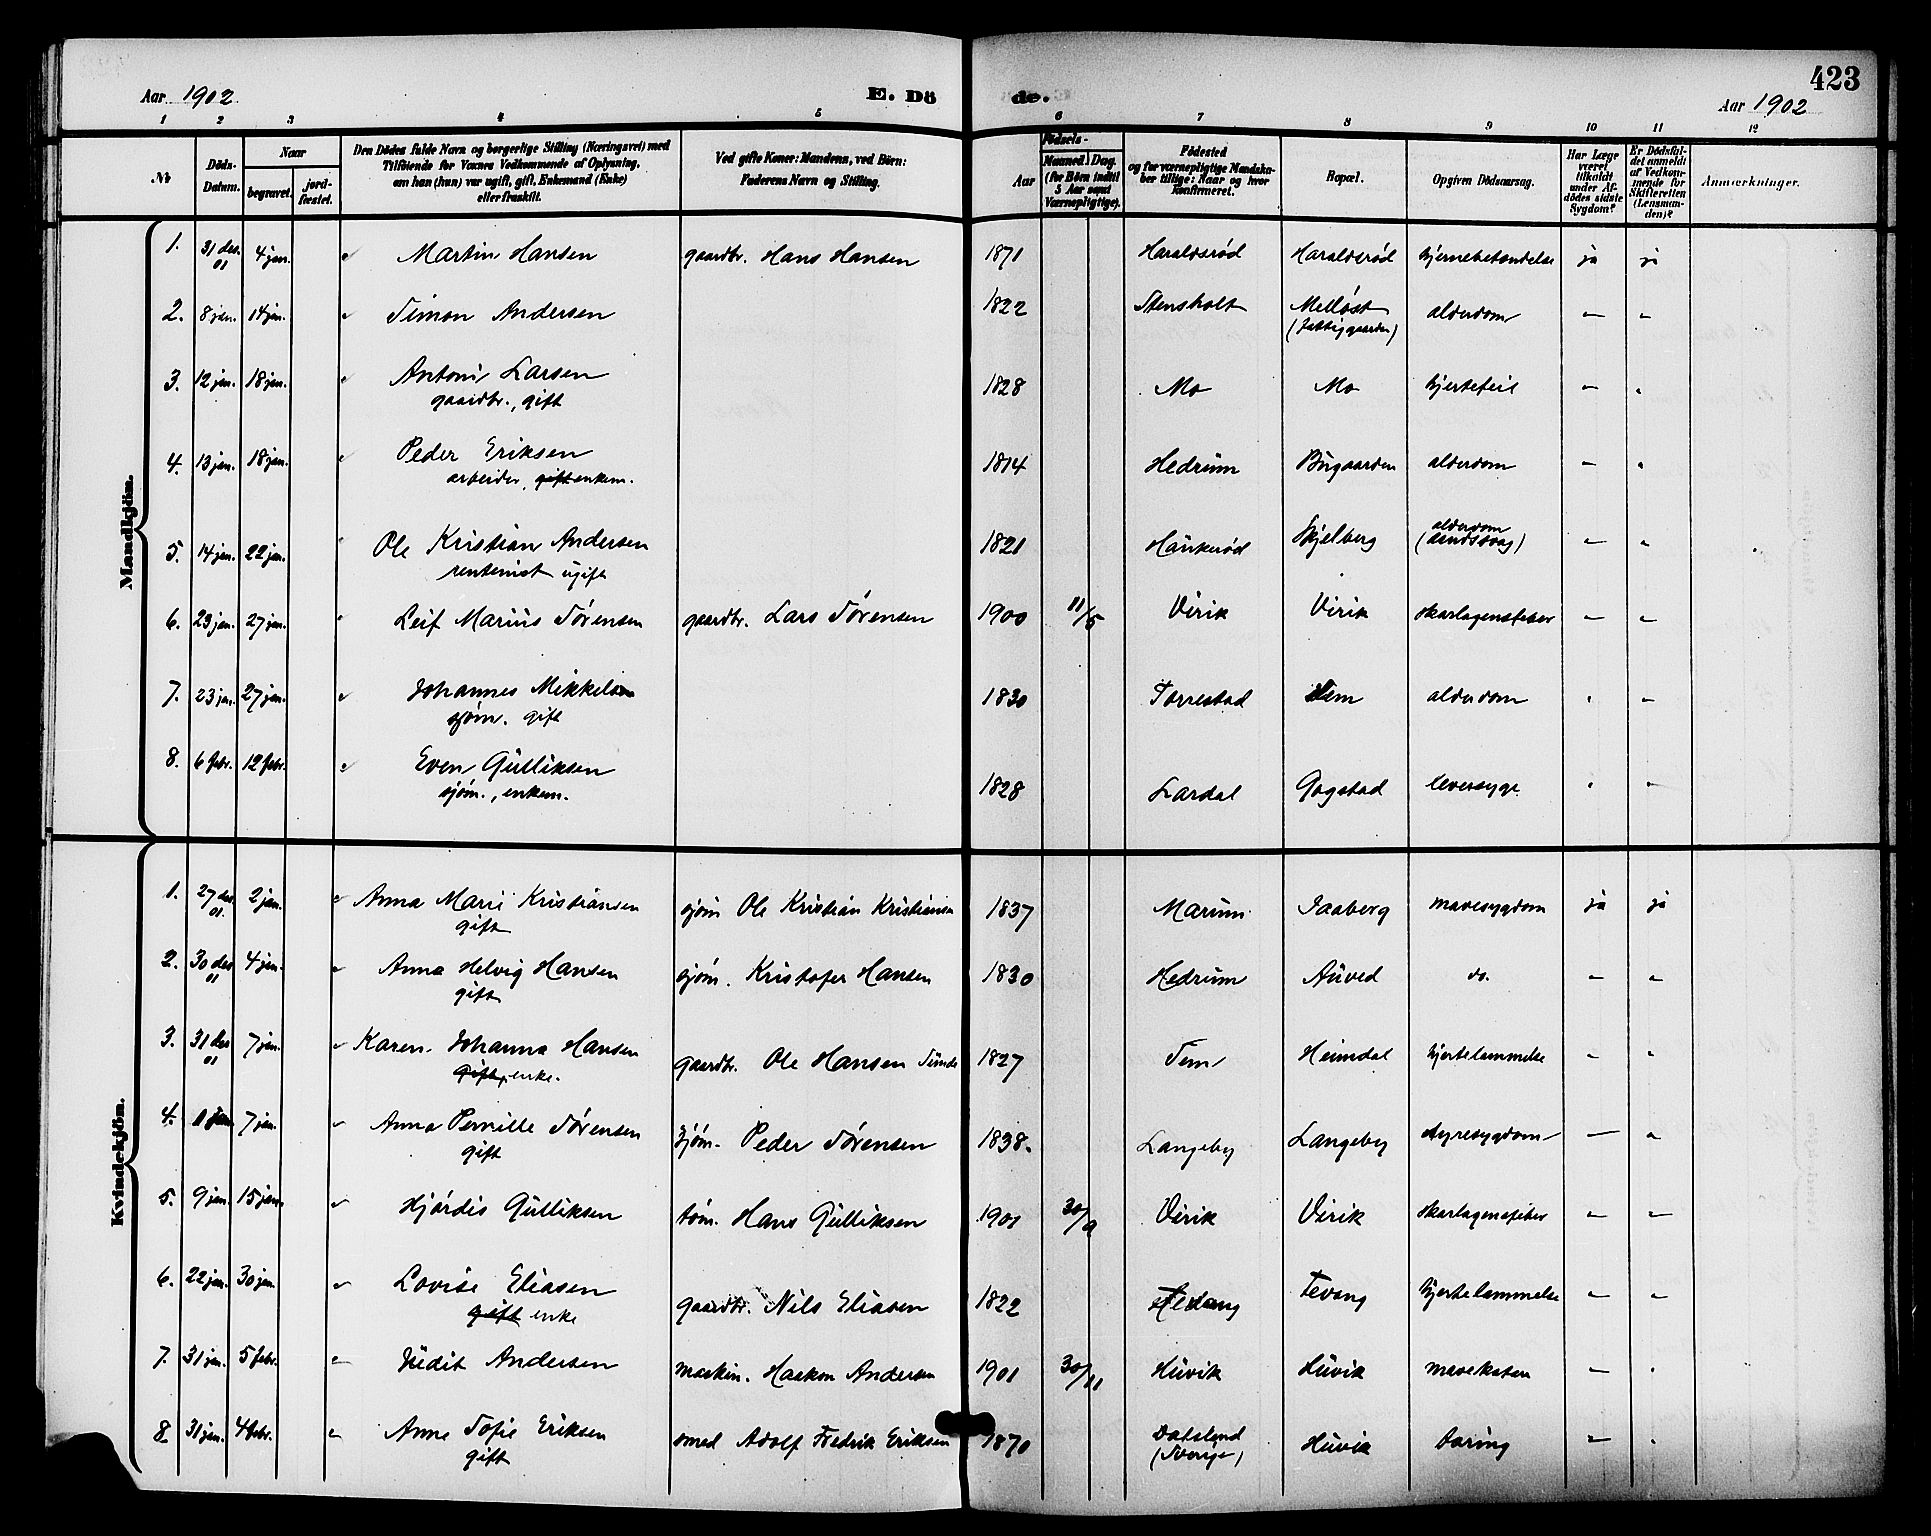 423
Aar 1902 E. Dö de. Aar 1902
1 2 3 4 5 6 7 8 9 10 11 12
№
Döds-Datum.
Naar
begravet.
jord-fæstet.
Den Dödes fulde Navn og borgerlige Stilling (Næringsvei) med
Tilföiende for Voxnes Vedkommende af Oplysning,
om han (hun) var ugift, gift, Enkemand (Enke)
eller fraskilt.
Ved gifte Koner: Mandens, ved Börn:
Faderens Navn og Stilling.
Födsels-
Aar
Maaned
Dag.
(for Börn indtil
5 Aar samt
Værnepligtige).
Födested
og for værnepligtige Mandska-
ber tillige: Naar og hvor
Konfirmeret.
Bopæl.
Opgiven Dödsaarsag.
Har Læge
været
tilkaldt
under Af-
dödes sidste
Sygdom?
Er Dödsfal-
det anmeldt
af Vedkom-
mende for
Skifteretten
(Lensman-
den)?
Anmærkninger.
Mandkjön.
1. 31 des. 01 4 jan. " Martin Hansen gaardbr. Hans Hansen 1871 Haraldsrød Haraldsrød hjernebetændelse ja ja
2. 8 jan. 14 jan. " Simon Andersen 1822 Stensholt Melløst alderdom " "
(fattiggaarden)
3. 12 jan. 18 jan. " Anton Larsen 1828 Mo Mo hjertefeil " "
gaardbr., gift
4. 13 jan. 18 jan. " Peder Eriksen 1814 Hedrum Bugaarden alderdom " "
arbeider, gift enkem.
5. 14 jan. 22 jan. " Ole Kristian Andersen 1821 Haukerød Skjelberg alderdom " "
rentenist ugift (aandssvag)
6. 23 jan. 27 jan. " Leif Marius Sørensen gaardbr. Lars Sørensen 1900 11/5 Virik Virik skarlagensfeber " "
7. 23 jan. 27 jan. " Johannes Mikkelsen 1830 Torrestad Sem alderdom " "
sjøm. gift
8. 6 febr. 12 febr. " Even Gulliksen 1828 Lardal Gogstad leversyge " "
sjøm., enkem.
Kvindekjön.
1. 27 des. 01. 2 jan. " Anna Marie Kristiansen sjøm Ole Kristian Kristiansen 1837 Marum Jaaberg mavesygdom ja ja
gift
2. 30 des 01 4 jan. " Anna Helvig Hansen sjøm. Kristofer Hansen 1830 Hedrum Auved do. " "
gift
3. 31 des 01 7 jan. " Karen Johanna Hansen gaardbr. Ole Hansen 1827 Sem Heimdal hjertelammelse " "
gift, enke.
4. 1 jan 7 jan. " Anna Pernille Sørensen sjøm. Peder Sørensen 1838. Langeby Langeby nyresygdom " "
gift
5. 9 jan. 15 jan. " Hjørdis Gulliksen tøm. Hans Gulliksen 1901 30/9 Virik Virik skarlagensfeber " "
6. 22 jan. 30 jan. " Lovise Eliasen gaardbr. Nils Eliasen 1822 Tevang hjertelammelse " "
gift enke
7. 31 jan. 5 febr. " Judit Andersen maskin. Haakon Andersen 1901 30/11 Huvik Huvik mavekatar " "
8. 31 jan. 4 febr. " Anne Sofie Eriksen smed Adolf Fredrik Eriksen 1870 Dalsland Huvik tæring " "
gift (Sverige)